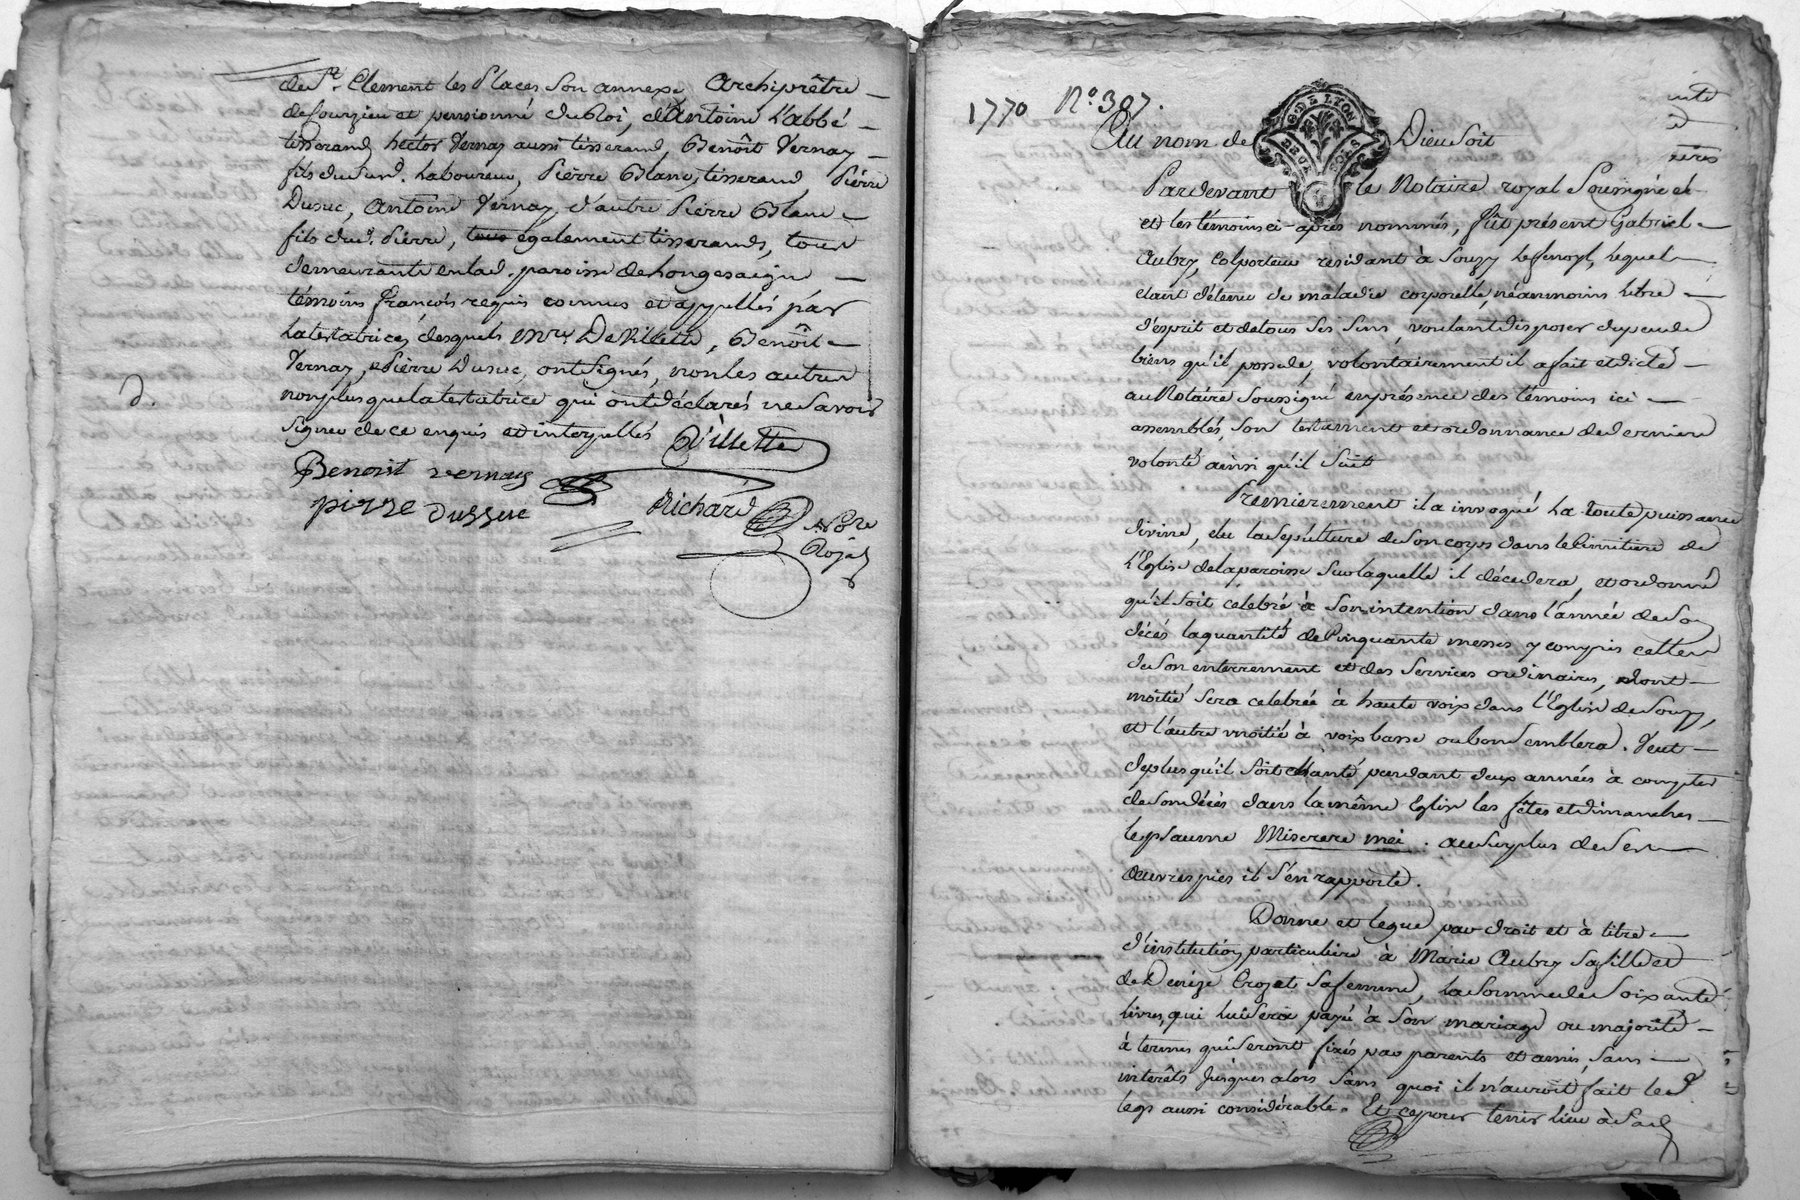 de St. Clement les Places son annexe, Archiprêtre
de Courzieu et pensionné du Roi, d'Antoine L'abbé
tisserand, hector Vernay aussi tisserand, Benoît Vernay
fils dud. Laboureur, Pierre Blanc, tisserand, Pierre
Dusuc, Antoine Vernay, d'autre Pierre Blanc
fils dud. Pierre, tous également tisserands, tous
demeurants en lad. paroisse de Longesaigne
témoins françois requis connus et appellés par
la testatrice, desquels Mre. De Villette, Benoît
Vernay, Pierre Dusuc, ont signés, non les autres
non plus que la testatrice qui ont déclarés ne savoir
signer de ce enquis et interpellés Villette
D.
Benoist vernay
pierre dussuc Richard Nore
Royal
1770 No. 307.
G. DE LYON
DEUX SOLS
Au nom de Dieu soit
Pardevant le Notaire royal soussigné et
et les témoins ci-après nommés, fût présent Gabriel
Aubry, Colporteur residant à Souzy Le fenoyl, Lequel
étant détenu de maladie corporelle, néanmoins libre
d'esprit et de tous ses sens, voulant disposer du peu de
biens qu'il possede, volontairement il a fait et dicté
au Notaire Soussigné en présence des témoins ici
assemblés, son testament et ordonnance de derniere
volonté ainsi qu'il suit
Premierement il a invoqué La toute puissance
divine, élu la sépulture de son corps dans le Cimitiere de
L'Eglise de la paroisse sur laquelle il décedera, et ordonné
qu'il soit celebré à son intention dans l'année de son
décès la quantité de Cinquante messes y compris celles
de son enterrement et des services ordinaires, dont
moitié sera celebrée à haute voix dans l'Eglise de Souzy,
et l'autre moitié à voix basse ou bon semblera. Veut
de plus qu'il soit chanté pendant deux années à compter
de son décès dans la même Eglise les fêtes et dimanches
le psaume Miserere mei. au surplus de ses
œuvres pies il s'en rapporte.
Donne et legue par droit et à titre
d'institution particuliere à Marie Aubry sa fille et
de Denize Crozet sa femme, la somme de soixante
livres, qui lui sera payé à son mariage ou majorité
à termes qui seront fixés par parents et amis, sans
interêts jusques alors sans quoi il n'auroit fait led.
legs aussi considérable. Et ce pour tenir lieu à sad.